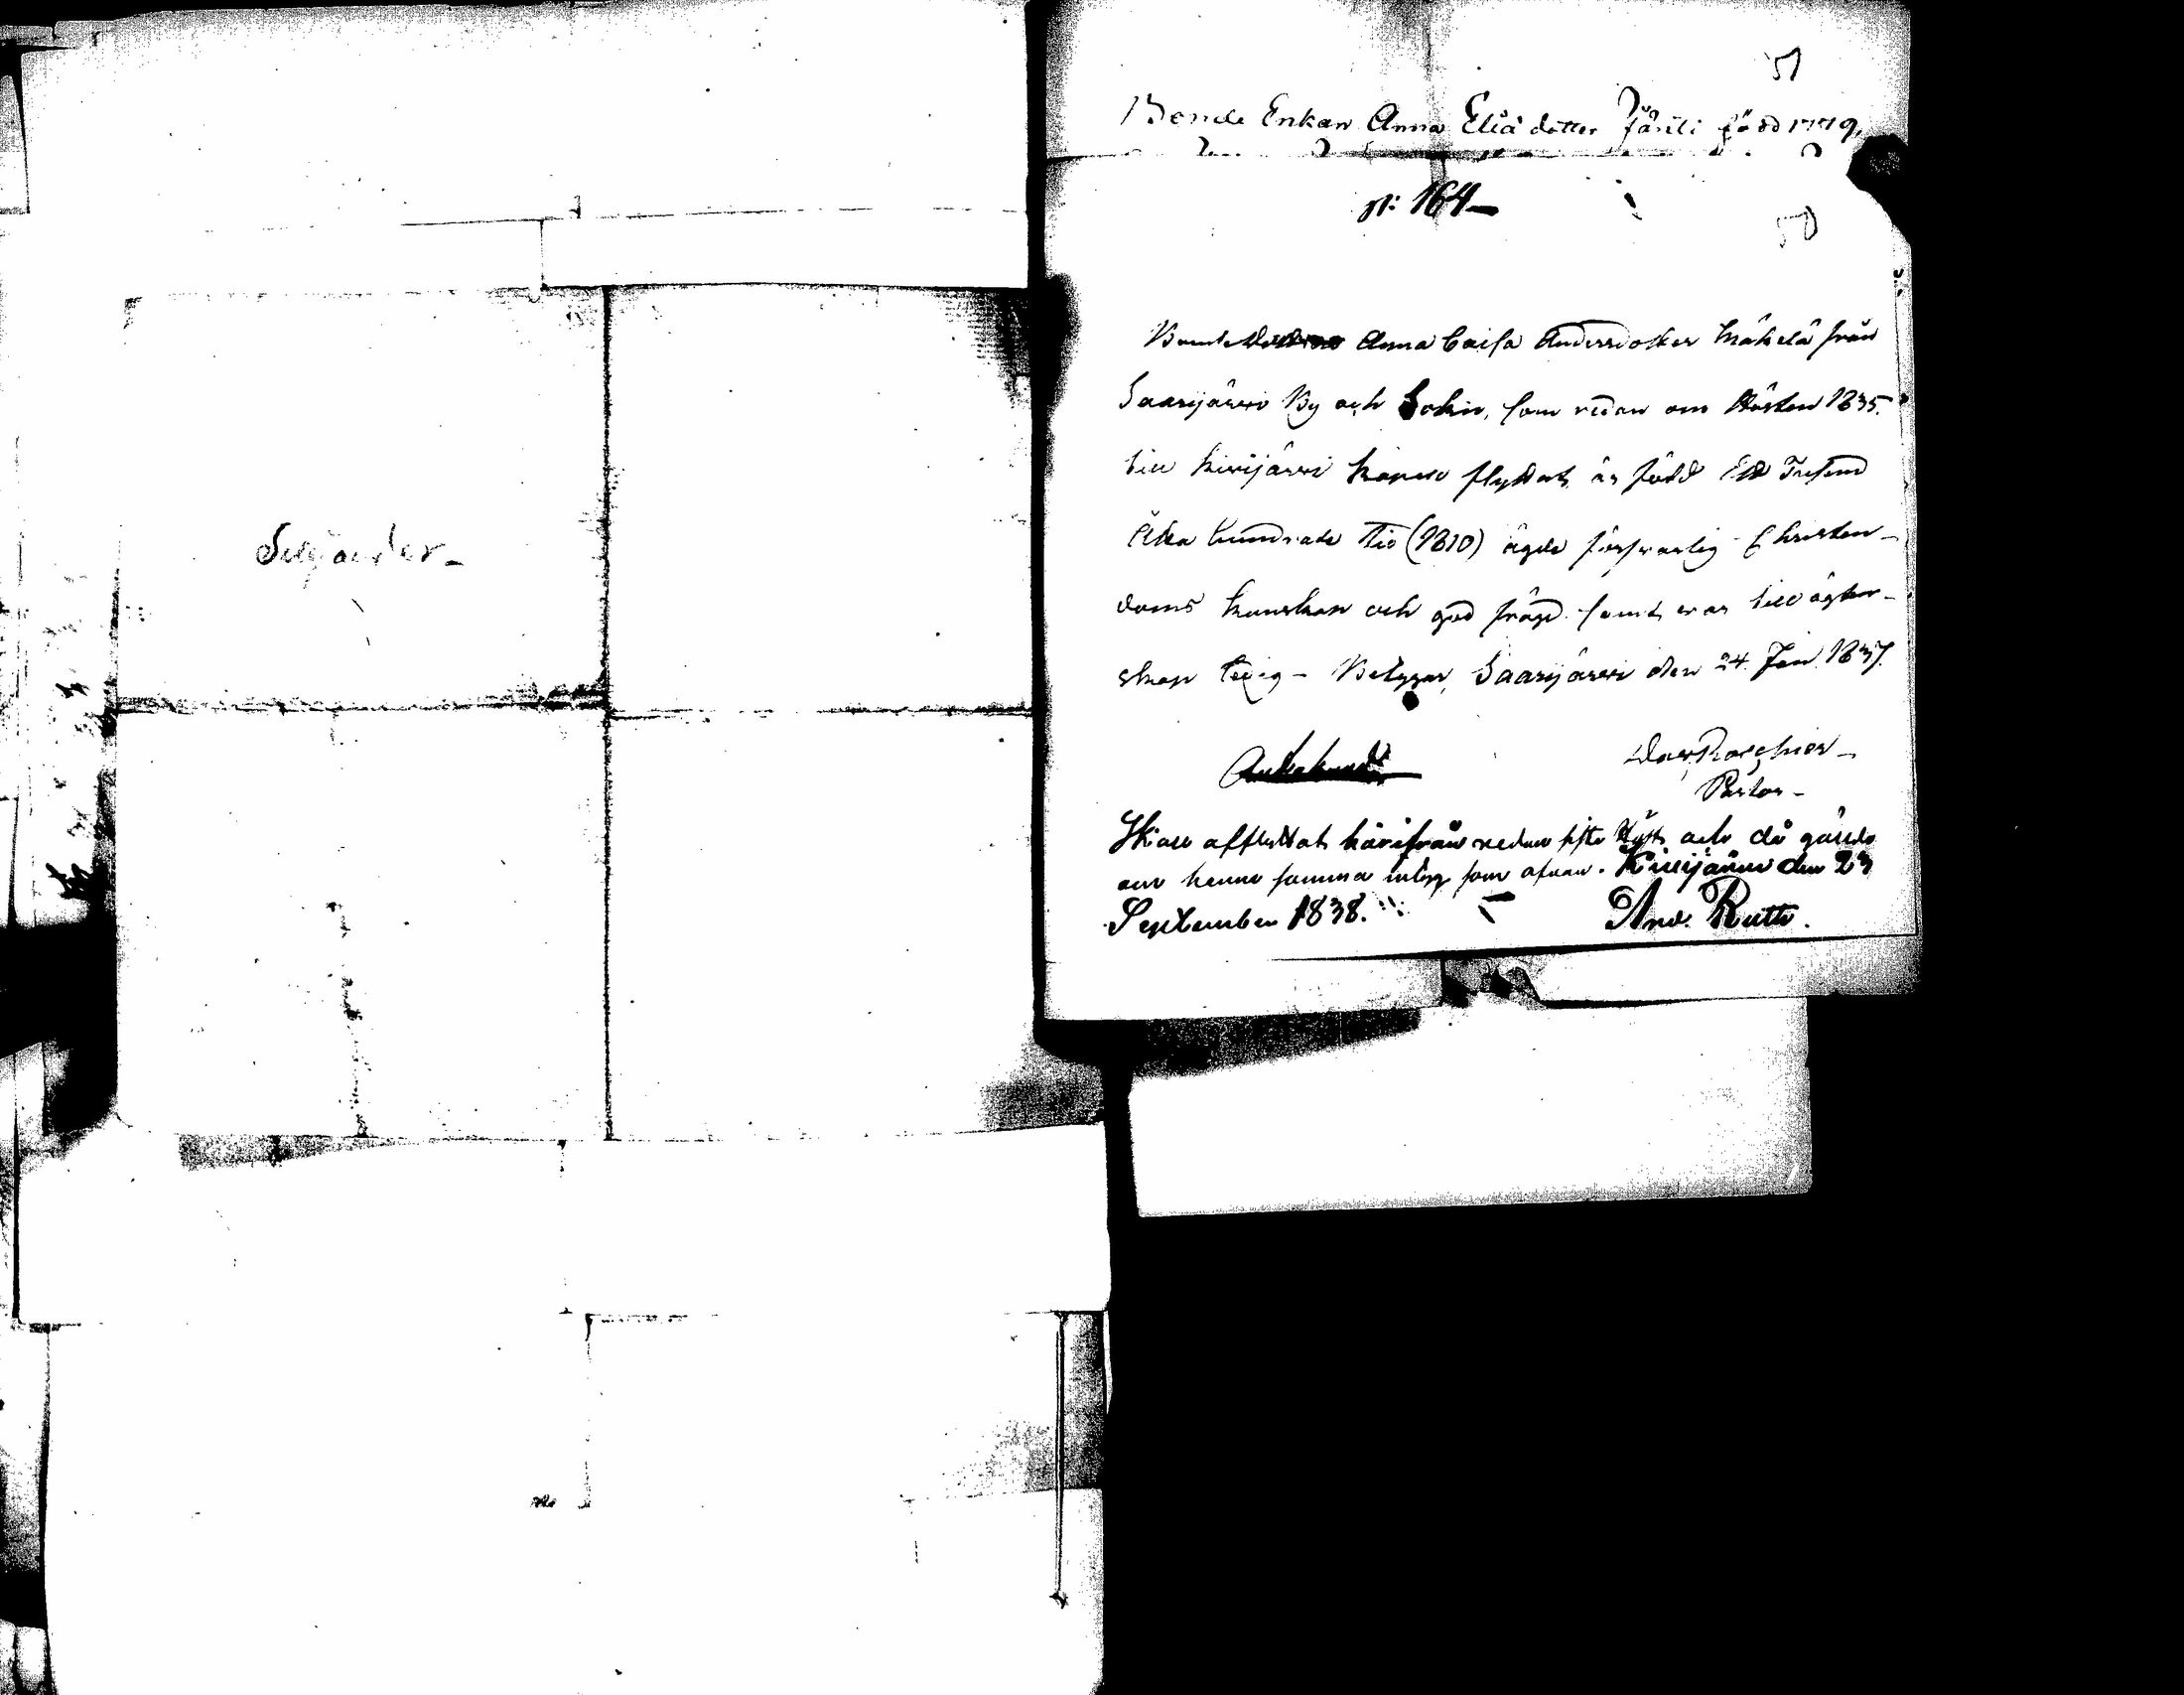 Seljander -
51
Bonde Enkan Anna Eliä dotter Järili född 1779,
N: 164 -
50
Bonde Anna Caisa Andersdotter Mäkelä från
Saarijärvi By och Sokn, som redan om Hösten 1835.
till Kivijärvi Kapell flyttat, är född Ett Tusend
Åtta hundrade Tio (1810) ägde försvarlig Christen-
doms kunskap och god frägd samt var till ägten-
skap ledig - Betygar, Saarijärvi den 24. Jan. 1837.
Pastor -
Skall afflyttat härifrån redan sista Höst, och då gällde
om henne samma intyg som ofvan. Kivijärvi den 23
September 1838.
And. Ruth.